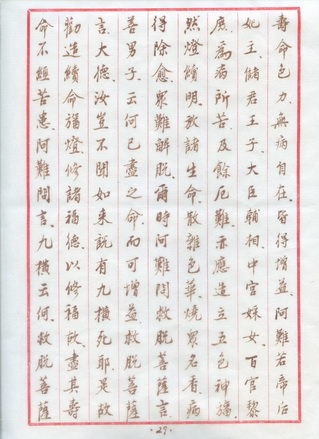 壽命色力無病自在皆得增益阿難若帝后
妃主儲君王子大臣輔相中宮婇女百官黎
庶為病所苦及餘厄難亦應造立五色神旛
然燈續明放諸生命散雜色華燒眾名香病
得除愈眾難解脫爾時阿難問救脫菩薩言
善男子云何已盡之命而可增益救脫菩薩
言大德汝豈不聞如來說有九橫死耶是故
勸造續命旛燈修諸福德以修福故盡其壽
命不經苦患阿難問言九橫云何救脫菩薩
·29·